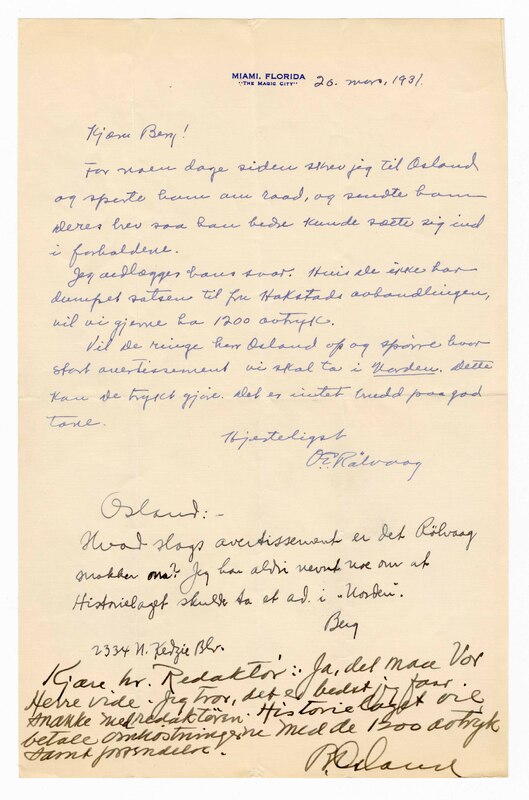 MIAMI, FLORIDA
"THE MAGIC CITY"
20. mars, 1931.
Kjære Berg!
For noen dage siden skrev jeg til Osland
og spurte ham om raad, og sendte ham
Deres brev saa han bedre kunde sætte sig ind
i forholdene.
Jeg vedlægger hans svar. Hvis de ikke har
dumpet satsen til fru Hokstads avhandlingen,
vil vi gjerne ha 1200 avtryk.
Vil De ringe herr Osland op og spørre hvor
stort avertissement vi skal ta i Norden. Dette
kan De trygt gjøre. Det er intet brudd paa god
tone.
Hjerteligst
O.E. Rölvaag
Osland:-
Hvad slags avertissement er det Rölvaag
snakker om? Jeg har aldri nevnt noe om at
Historielaget skulde ta et ad. i "Norden".
Berg
2334 N. Kedzie Blv.
Kjære hr. Redaktör: Ja, det maa Vor
Herre vide. Jeg tror, det er bedst jeg faar
snakke med redaktören. Historielaget vil
betale omkostningerne med de 1200 avtryk
samt forsendelse.
B. Osland